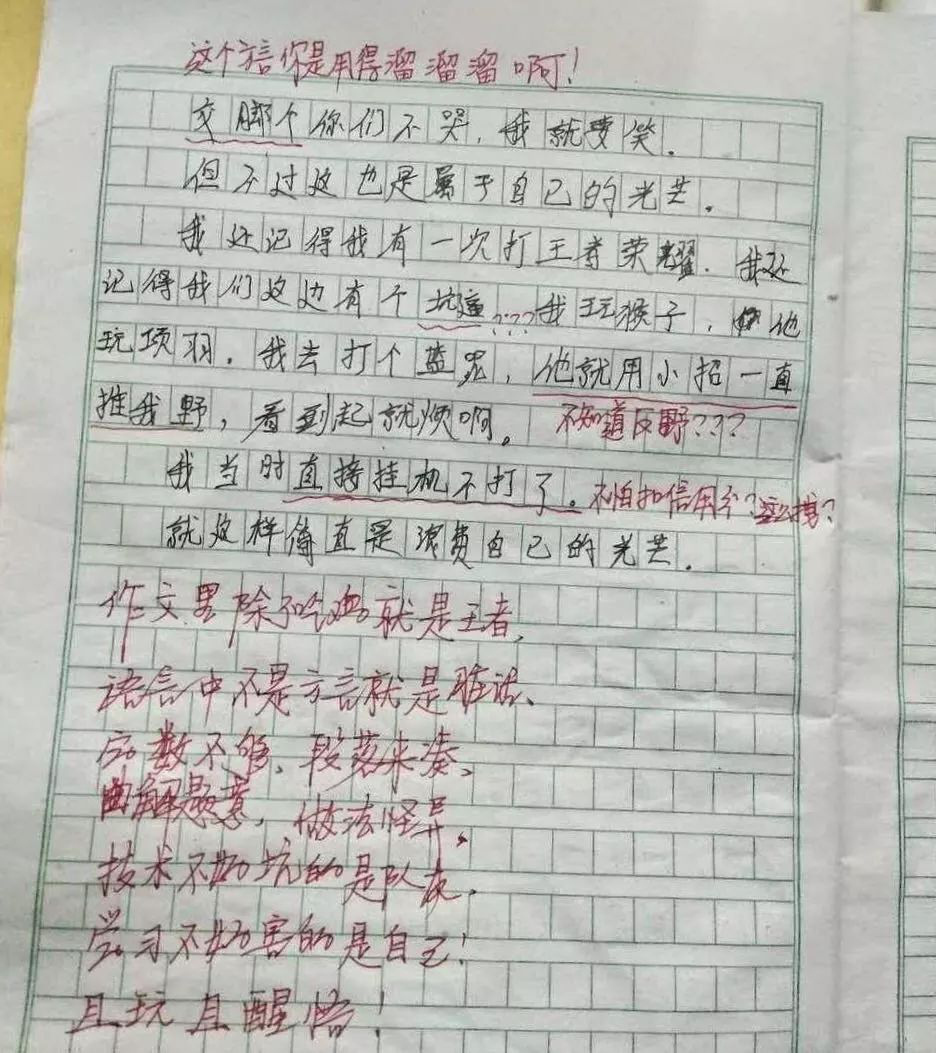 这个方言你是用得溜溜溜啊!
交脚个你们不哭,我就要笑.
但不过这也是属于自己的光芒.
我还记得我有一次打王者荣耀.我还
记得我们这边有个坑逼,???我玩猴子,他
玩项羽.我去打个蓝 ,他就用小招一直
推我野,看到起就烦啊。不知道反野???
我当时直接挂机不打了.不怕扣信用分?这么拽?
就这样简直是浪费自己的光芒.
作文里除了 就是王者,
语言中不是方言就是脏话、
字数不够、段落来凑、
曲解题意,做法怪异、
技术不好坑的是队友,
学习不好害的是自己!
且玩且醒悟!